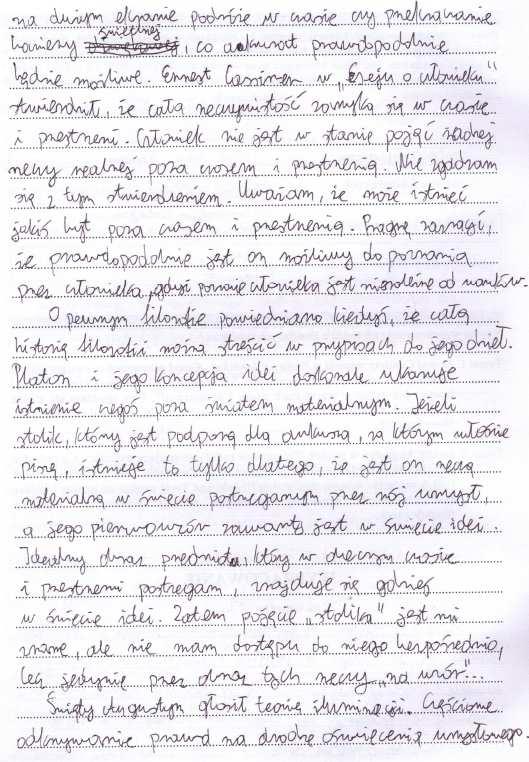 na dużym ekranie podróże w czasie czy przekraczanie
bariery świetlnej, co akurat prawdopodobnie
będzie możliwe. Ernest Cassirer w „Eseju o człowieku”
stwierdził, że cała rzeczywistość zamyka się w czasie
i przestrzeni. Człowiek nie jest w stanie pojąć żadnej
rzeczy realnej poza czasem i przestrzenią. Nie zgadzam
się z tym stwierdzeniem. Uważam, że może istnieć
jakiś byt poza czasem i przestrzenią. Pragnę zaznaczyć,
że prawdopodobnie jest on możliwy do poznania
przez człowieka, gdyż poznanie człowieka jest niezależne od
O pewnym filozofie powiedziano kiedyś, że całą
historię filozofii można streścić w przypisach do jego dzieł.
Platon i jego koncepcja idei doskonale ukazuje
istnienie czegoś poza światem materialnym. Jeżeli
stolik, który jest podporą dla arkusza, na którym właśnie
piszę, istnieje to tylko dlatego, że jest on rzeczą
materialną w świecie postrzeganym przez mój umysł,
a jego pierwowzór zawarty jest w świecie idei.
Idealny obraz przedmiotu, który w obecnym czasie
i przestrzeni postrzegam, znajduje się gdzieś
w świecie idei. Zatem pojęcie „stolika” jest mi
znane, ale nie mam dostępu do niego bezpośrednio,
lecz jedynie przez obraz tych rzeczy „na wzór”...
Święty Augustyn głosił teorię iluminacji. Częściowe
odkrywanie prawd na drodze oświecenia umysłowego.